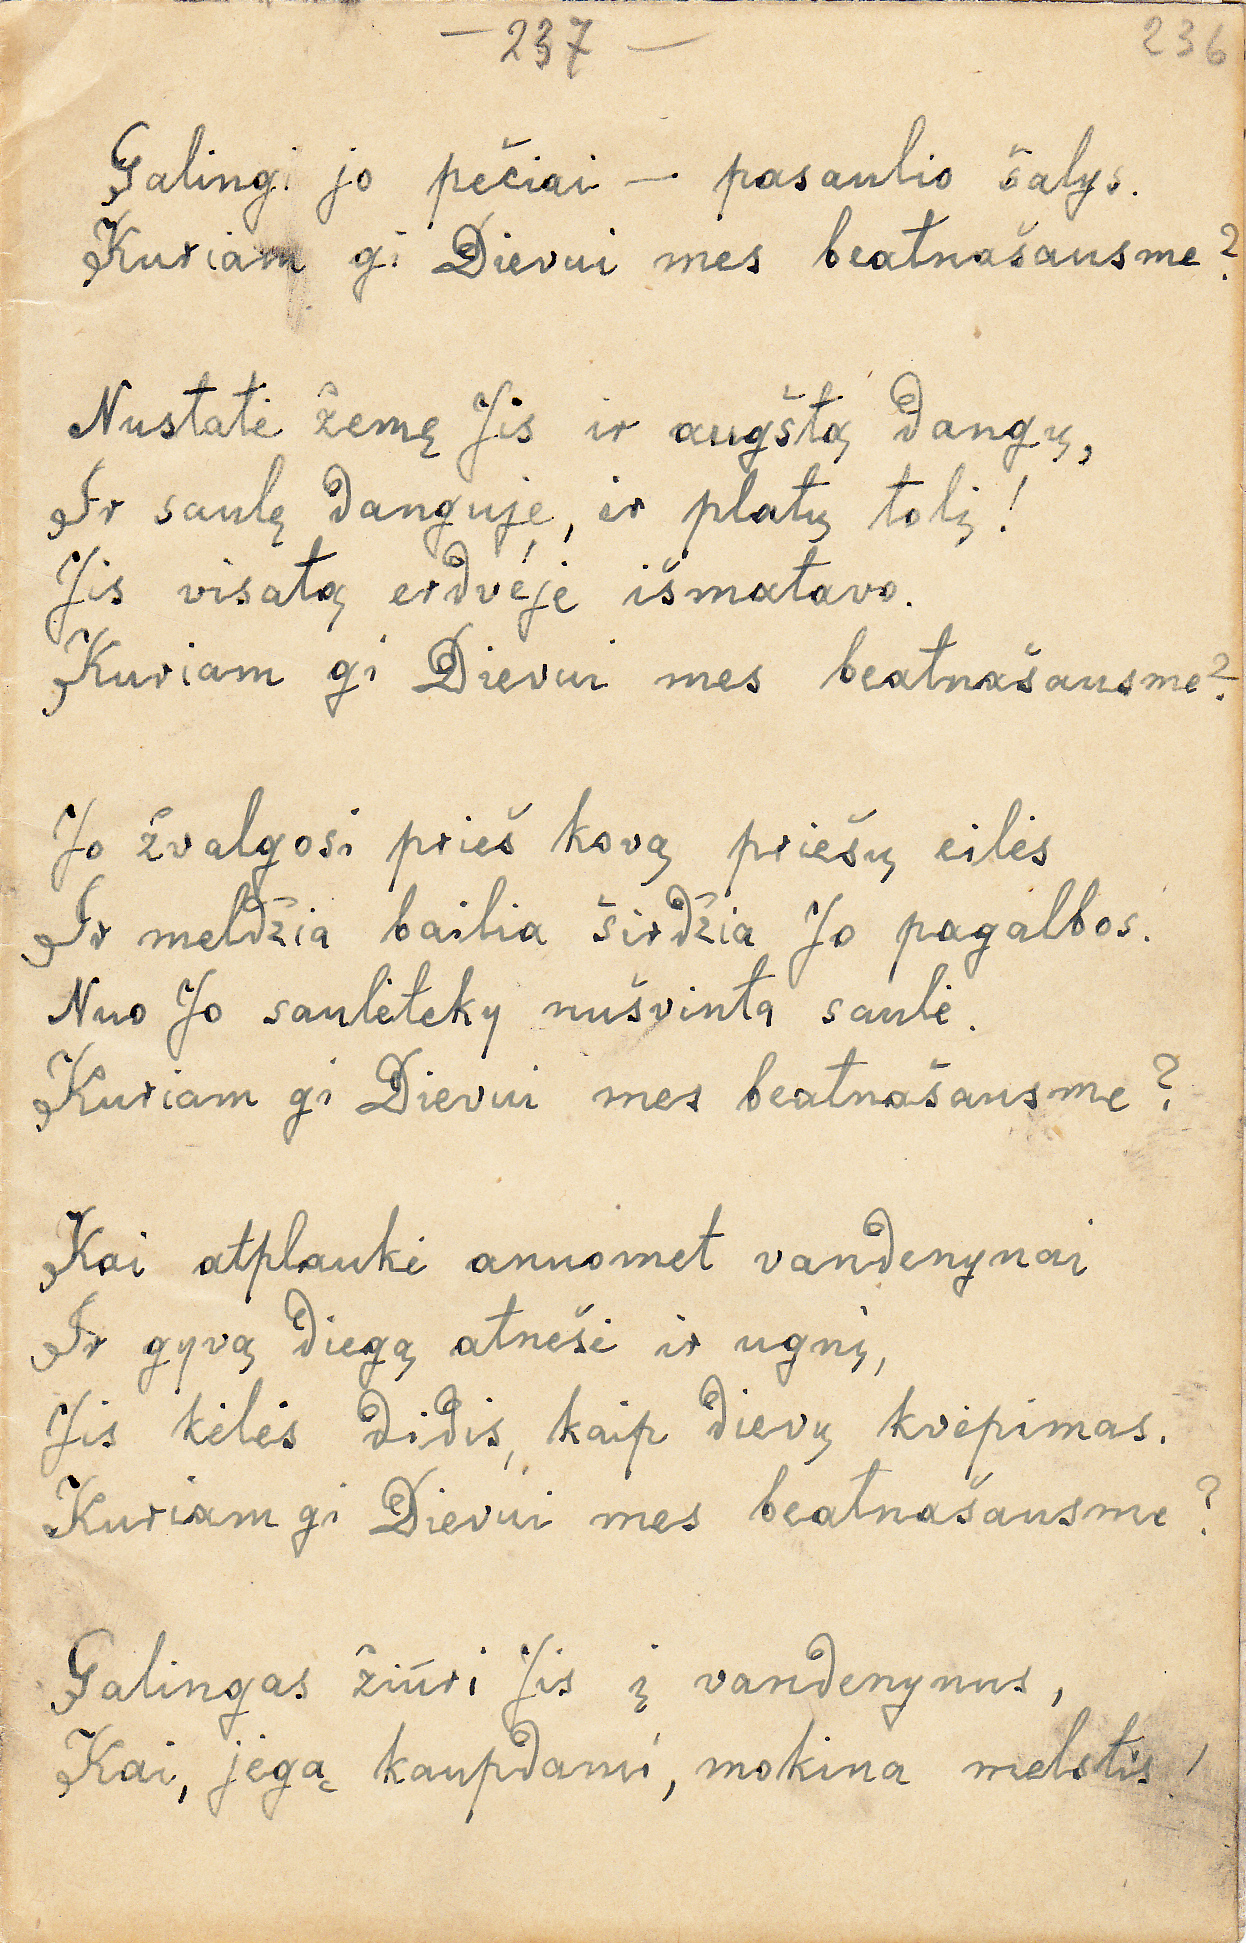 — 237 — 236
Galingi jo pečiai — pasaulio šalys.
Kuriam gi Dievui mes beatnašausme?
Nustatė žemę Jis ir augštą dangų,
Ir saulę danguje, ir platų tolį!
Jis visatą erdvėje išmatavo.
Kuriam gi Dievui mes beatnašausme?
Jo žvalgosi prieš kovą priešų eilės
Ir meldžia bailia širdžia Jo pagalbos.
Nuo Jo saulėteky nušvinta saulė.
Kuriam gi Dievui mes beatnašausme?
Kai atplaukė anuomet vandenynai
Ir gyvą diegą atnešė ir ugnį,
Jis kėlės didis, kaip dievų kvėpimas.
Kuriam gi Dievui mes beatnašausme?
Galingas žiūri Jis į vandenynus,
Kai, jėgą kaupdami, mokina melstis /